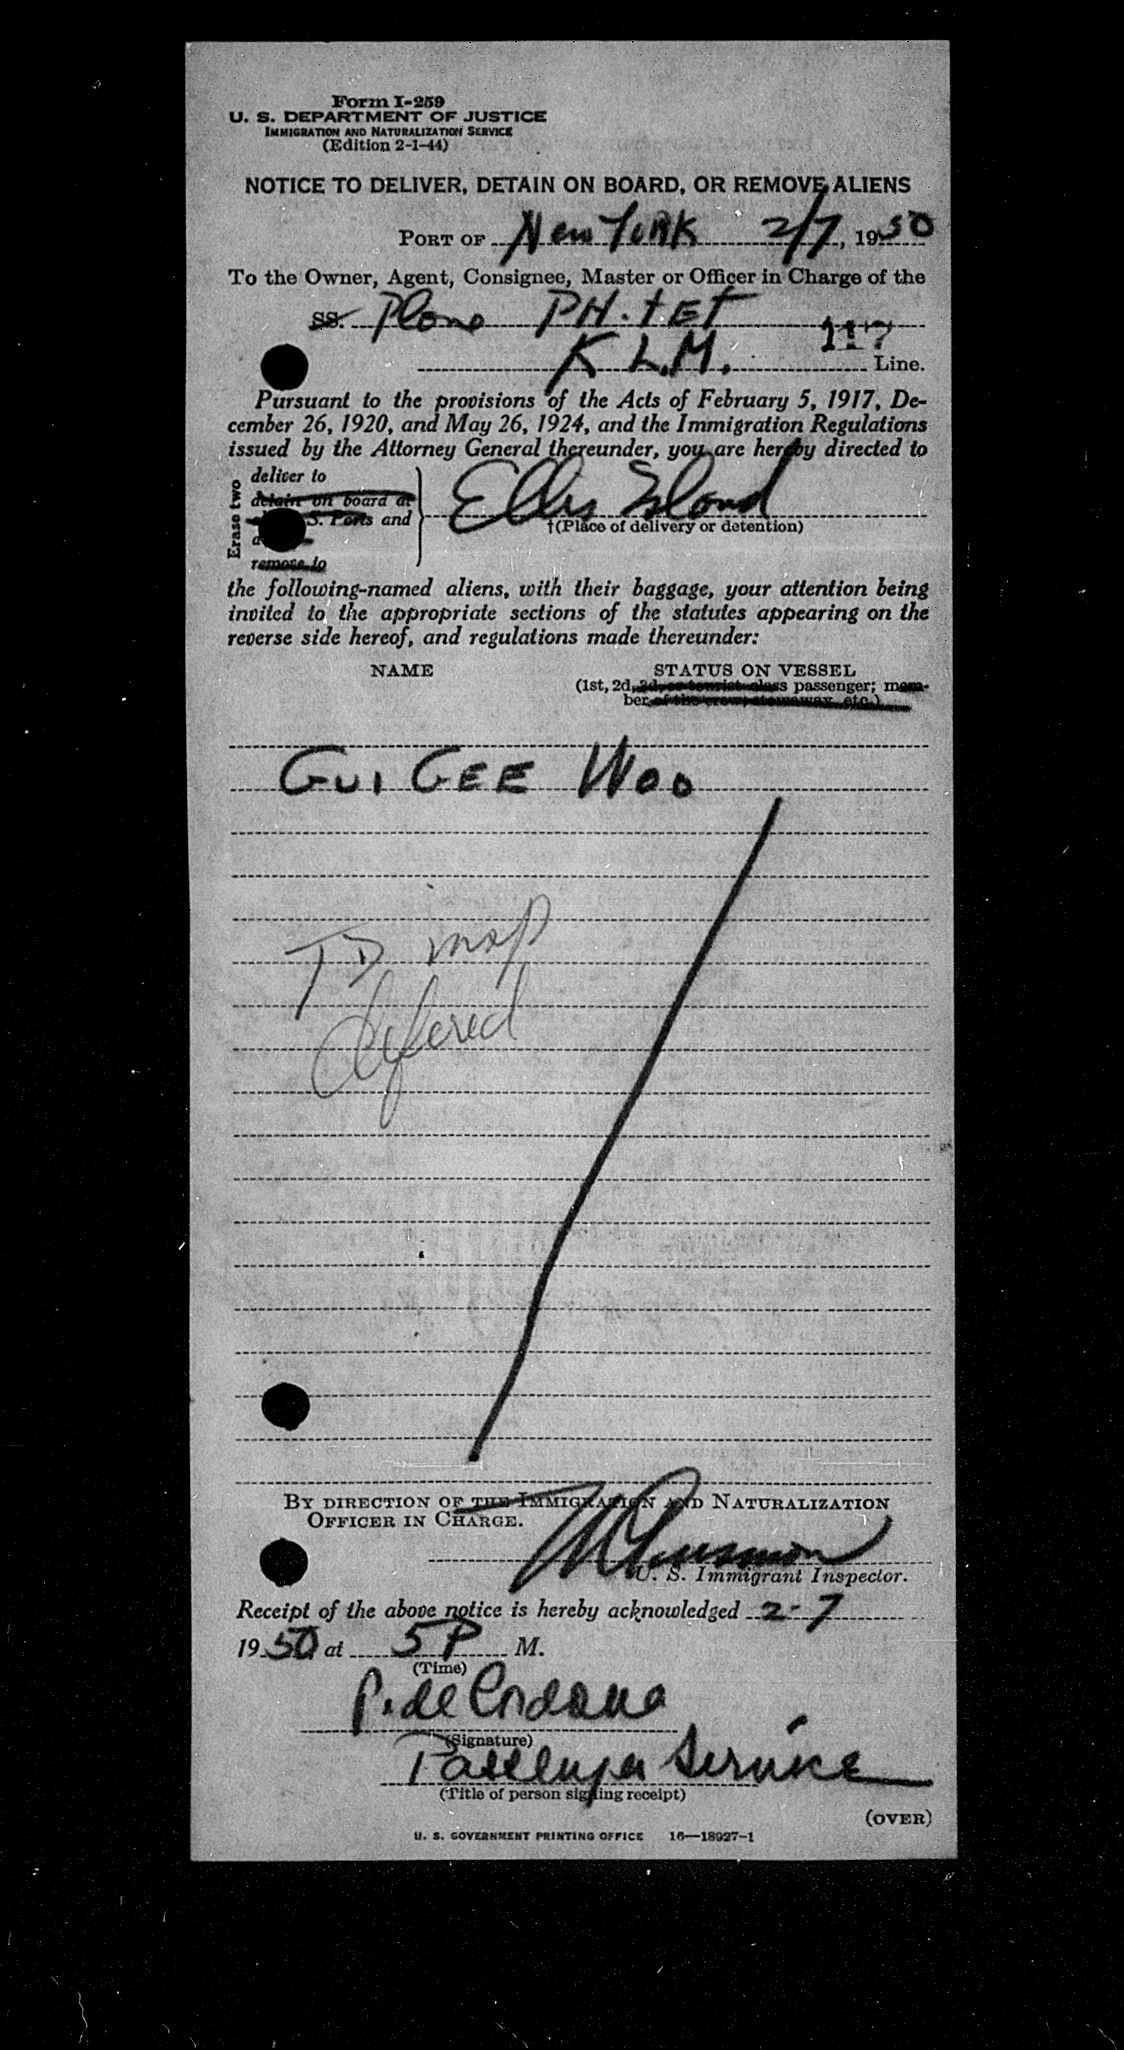 Form I-259
U. S. DEPARTMENT OF JUSTICE
IMMIGRATION AND NATURALIZATION SERVICE
(Edition 2-1-44)
NOTICE TO DELIVER, DETAIN ON BOARD, OR REMOVE ALIENS
PORT OF New York 2/7, 1950
To the Owner, Agent, Consignee, Master or Officer in Charge of the
SS. Plane PH.TET
117
K L.M. Line.
Pursuant to the provisions of the Acts of February 5, 1917, De-
cember 26, 1920, and May 26, 1924, and the Immigration Regulations
issued by the Attorney General thereunder, you are hereby directed to
Erase two
deliver to
detain on board at
S. Ports and
remove to
Ellis Island
†(Place of delivery or detention)
the following-named aliens, with their baggage, your attention being
invited to the appropriate sections of the statutes appearing on the
reverse side hereof, and regulations made thereunder:
NAME STATUS ON VESSEL
(1st, 2d, 3d, or tourist class passenger; mem-
ber of the crew, stowaway, etc.)
GUI GEE WOO
TD insp
defered
BY DIRECTION OF THE IMMIGRATION AND NATURALIZATION
OFFICER IN CHARGE.
U. S. Immigrant Inspector.
Receipt of the above notice is hereby acknowledged 2-7
1950 at 5 P M.
(Time)
P. de Cordova
(Signature)
Passenger Service
(Title of person signing receipt)
(OVER)
U. S. GOVERNMENT PRINTING OFFICE 16—18927-1